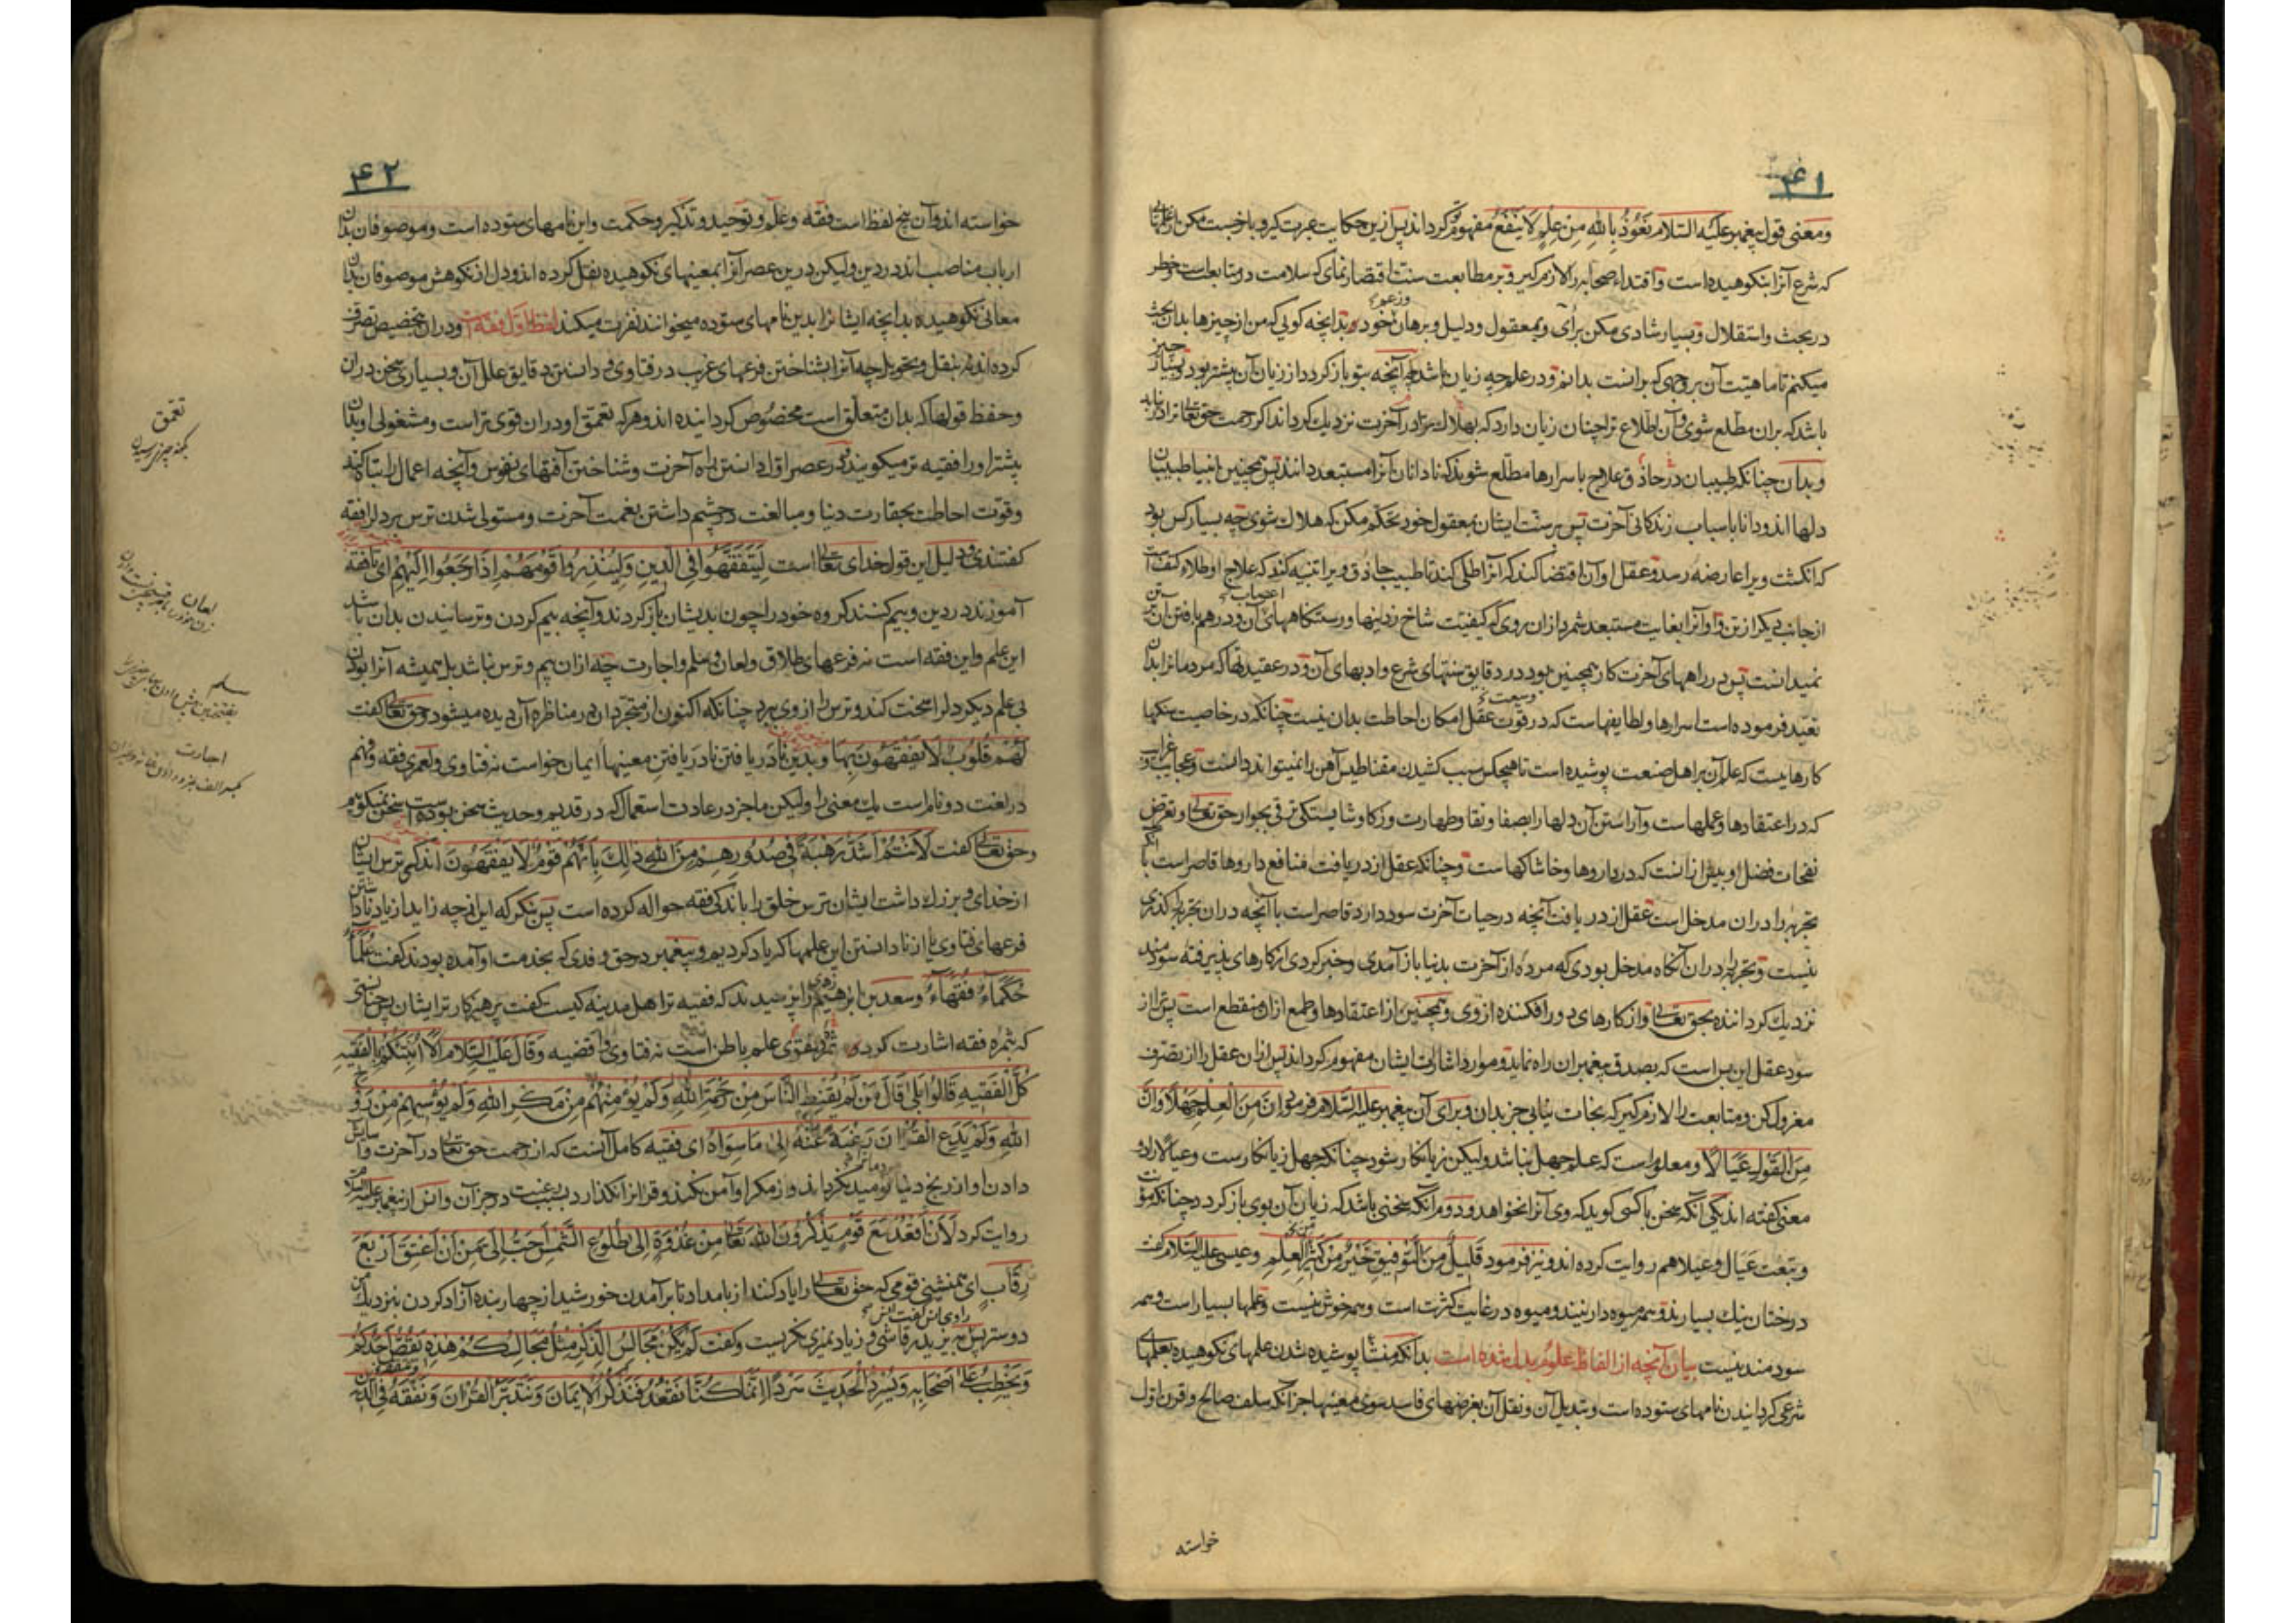 ۴۱
ومعنی قول پیغمبر علیه السلام نعوذ بالله من علم لا ینفع مفهوم تو گرداند پس ازین حکایت عبرت گیر و باحبست مکن از علمهائی
که شرع آنرا بنکوهیده است و اقتداء صحابه را لازم گیر و بر مطابعت سنت اقتصار نمای که سلامت در متابعت است و خطر
در بحث و استقلال و بسیار شادی مکن برأی و بمعقول و دلیل و برهان خود و زعم بدانچه گویی که من از چیزها بدان بحث
میکنم تا ماهیت آن بر وجهی که برانست بدانم و در علم چه زیان باشد چه آنچه بتو باز گردد از زیان آن بیشتر بود و بسیار چیز
باشد که بران مطلع شوی و آن اطلاع ترا چنان زیان دارد که بهلاک در آخرت نزدیک گرداند اگر رحمت حق تعالی ترا درنیابد
و بدان چنانکه طبیبان در حاذق علاج باسرارها مطلع شوید که نادانان آنرا مستبعد دانند پس همچنین انبیا طبیبان
دلها اند و دانا باسباب زندگانی آخرت پس بر سنت ایشان بمعقول خود تحکم مکن که هلاک شوی چه بسیار کس بود
که انگشت ویرا عارضه رسد و عقل او آن اقتضا کند که آنرا طلی کند تا طبیب حاذق ویرا تنبیه کند که علاج او طلاء کف است
از جانب دیگر از تن و او آنرا بغایت مستبعد شمرد از ان روی که کیفیت شاخ زدن پیها و رستنگاههای آن و درهم بافتن آن بر تن
نمیدانست پس در راههای آخرت کار همچنین بود در دقایق سنتهای شرع و ادبهای آن و در عقیدتها که مردمانرا بدان
تعبد فرموده است اسرارها و لطایفهاست که در قوت عقل امکان احاطت بدان نیست چنانکه در خاصیت سنگها
کارهاییست که علم آن بر اهل صنعت پوشیده است تا هیچکس سبب کشیدن مقناطیس آهن را نمیتواند دانست و عجایب و غرایب
که در اعتقادها و عملهاست و آراستن آن دلها را بصفا و نقا و طهارت و زکا و شایستگی ترقی بجوار حق تعالی و تعرض
نفحات فضل او بیش از انست که در داروها و خاشاکهاست و چنانکه عقل از دریافت منافع داروها قاصر است با آنکه
تجربه را در ان مدخل است عقل از دریافت آنچه در حیات آخرت سود دارد قاصر است با آنچه در ان تجربه را گذری
نیست و تجربه را در ان آنگاه مدخل بودی که مرده از آخرت بدنیا باز آمدی و خبر کردی از کارهای پذیرفته سودمند
نزدیک گرداننده بحق تعالی و از کارهای دور افکننده از وی و همچنین از اعتقادها و طمع از ان منقطع است پس ترا از
سود عقل این بس است که بصدق پیغمبران راه نماید و موارد اشارت ایشان مفهوم گرداند پس از ان عقل را از تصرف
معزول کن و متابعت را لازم گیر که نجات نیابی جز بدان و برای آن پیغمبر علیه السلام فرمود ان من العلم جهلا و ان
من القول عیالا و معلوم است که علم جهل نباشد و لیکن زیانکار شود چنانکه جهل زیانکارست و عیالا را دو
معنی گفته اند یکی آنکه سخن باکسی گوید که وی آنرا نخواهد و دوم آنکه سخنی باشد که زیان آن بوی باز گردد چنانکه مؤنت
و تبعت عیال و عیلا هم روایت کرده اند و نیز فرمود قلیل من التوفیق خیر من کثیر العلم و عیسی علیه السلام گفت
درختان نیک بسیارند و همه میوه دار نیند و میوه در غایت کثرت است و همه خوش نیست و علمها بسیار است و همه
سودمند نیست بیان آنچه از الفاظ علوم بدل شده است بدانکه منشأ پوشیده شدن علمهای نکوهیده بعلمهای
شرعی گردانیدن نامهای ستوده است و تبدیل آن و نقل آن بغرضهای فاسد سوی معنیها جز آنکه سلف صالح و قرن اول
خواسته
۴۲
خواسته اند و آن پنج لفظ است فقه و علم و توحید و تذکیر و حکمت و این نامهای ستوده است و موصوفان بدان
ارباب مناصب اند در دین و لیکن درین عصر آنرا بمعنیهای نکوهیده نقل کرده اند و دل از نکوهش موصوفان بدان
معانی نکوهیده بدانچه ایشانرا بدین نامهای ستوده میخوانند نفرت میکند لفظ اول فقه است و در ان بتخصیص تصرف
کرده اند نه بنقل و تحویل چه آنرا بشناختن فرعهای غریب در فتاوی و دانستن دقایق علل آن و بسیاری سخن در ان
و حفظ قولها که بدان متعلق است مخصوص گردانیده اند و هر که تعمق او در ان قوی تر است و مشغولی او بدان
بیشتر او را فقیه تر میگویند و در عصر اول دانستن راه آخرت و شناختن آفتهای نفوس و آنچه اعمال را تباه کند
و قوت احاطت بحقارت دنیا و مبالغت در چشم داشتن بنعمت آخرت و مستولی شدن ترس بر دل را فقه
گفتندی و دلیل این قول خدای تعالی است لیتفقهوا فی الدین و لینذروا قومهم اذا رجعوا الیهم ای تا فقه
آموزند در دین و بیم کنند گروه خود را چون بدیشان باز گردند و آنچه بیم کردن و ترسانیدن بدان باشد
این علم و این فقه است نه فرعهای طلاق و لعان و سلم و اجارت چه ازان بیم و ترس نباشد بل همیشه آنرا بودن
بی علم دیگر دل را سخت کند و ترس را از وی ببرد چنانکه اکنون از متجردان در مناظره آن دیده میشود و حق تعالی گفت
لهم قلوب لا یفقهون بها و بدین نادریافتن نادریافتن معنیها ایمان خواست نه فتاوی و لعمری فقه و فهم
در لغت دو نام است یک معنی را و لیکن ما جز در عادت استعمال که در قدیم و حدیث سخن بوده است سخن نمیگوییم
و حق تعالی گفت لانتم اشد رهبة فی صدورهم من الله ذلک بانهم قوم لا یفقهون اندکی ترس ایشان
از خدای و بزرگ داشت ایشان ترس خلق را باندکی فقه حواله کرده است پس بنگر که این از چه زاید از یاد ناداشتن
فرعهای فتاوی یا از نادانستن این علمها که یاد کردیم و پیغمبر در حق وفدی که بخدمت او آمده بودند گفت علماء
حکماء فقهاء و سعد بن ابرهیم زهری را پرسیدند که فقیه تر اهل مدینه کیست گفت پرهیزگارتر ایشان پس چنانستی
که بثمره فقه اشارت کرد و ثمره تقوی علم باطن است نه فتاوی و اقضیه و قال علیه السلام الا انبئکم بالفقیه
کل الفقیه قالوا بلی قال من لم یقنط الناس من رحمة الله و لم یؤمنهم من مکر الله و لم یؤیسهم من روح
الله و لم یدع القرآن رغبة عنه الی ما سواه ای فقیه کامل آنست که از رحمت حق تعالی در آخرت و آسایش
دادن او از رنج دنیا مردمانرا نومید نگرداند و از مکر او آمن نکند و قرآنرا نگذارد بسبب رغبت در جز آن و انس از پیغمبر علیه السلام
روایت کرد لان اقعد مع قوم یذکرون الله تعالی من غدوة الی طلوع الشمس احب الی من ان اعتق اربع
رقاب ای همنشینی قومی که حق تعالی را یاد کنند از بامداد تا برآمدن خورشید از چهار بنده آزاد کردن بنزدیک من
دوستر پس بیزید رقاشی و زیاد نمیری نگریست و گفت لم یکن مجالس الذکر مثل مجالسکم هذه یقص احدکم
و یخطب علی اصحابه و یسرد الحدیث سردا انما کنا نقعد فنذکر الایمان و نتدبر القرآن و نفقه فی الدین
تعمق
لعان
سلم
اجارت